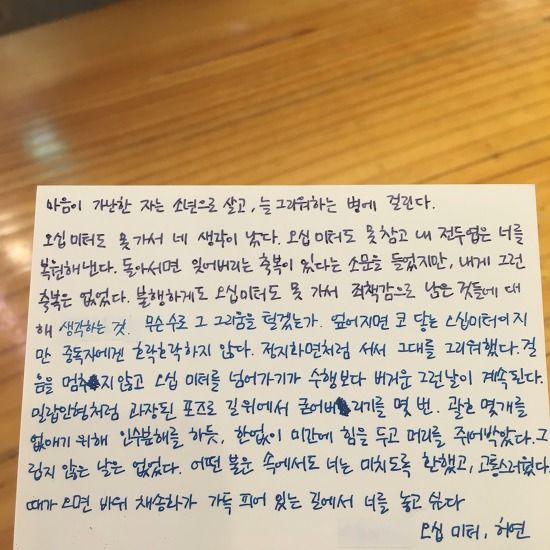 마음이 가난한 자는 소년으로 살고, 늘 그리워하는 병에 걸린다.
오십 미터도 못 가서 네 생각이 났다. 오십 미터도 못 참고 내 전두엽은 너를
복원해낸다. 돌아서면 잊어버리는 축복이 있다는 소문을 들었지만, 내게 그런
축복은 없었다. 불행하게도 오십미터도 못 가서 죄책감으로 남은 것들에 대
해 생각하는 것. 무슨수로 그 그리움을 털겠는가. 엎어지면 코 닿는 오십미터이지
만 중독자에겐 호락호락하지 않다. 정지화면처럼 서서 그대를 그리워했다. 걸
음을 멈추지 않고 오십 미터를 넘어가기가 수행보다 버거운 그런날이 계속된다.
밀랍인형처럼 과장된 포즈로 길위에서 굳어버리기를 몇 번. 괄호 몇개를
없애기 위해 인수분해를 하듯, 한없이 미간에 힘을 두고 머리를 쥐어박았다. 그
립지 않은 날은 없었다. 어떤 불운 속에서도 너는 미치도록 환했고, 고통스러웠다
때가 오면 바위 채송화가 가득 피어 있는 길에서 너를 놓고 싶다
오십 미터, 허연